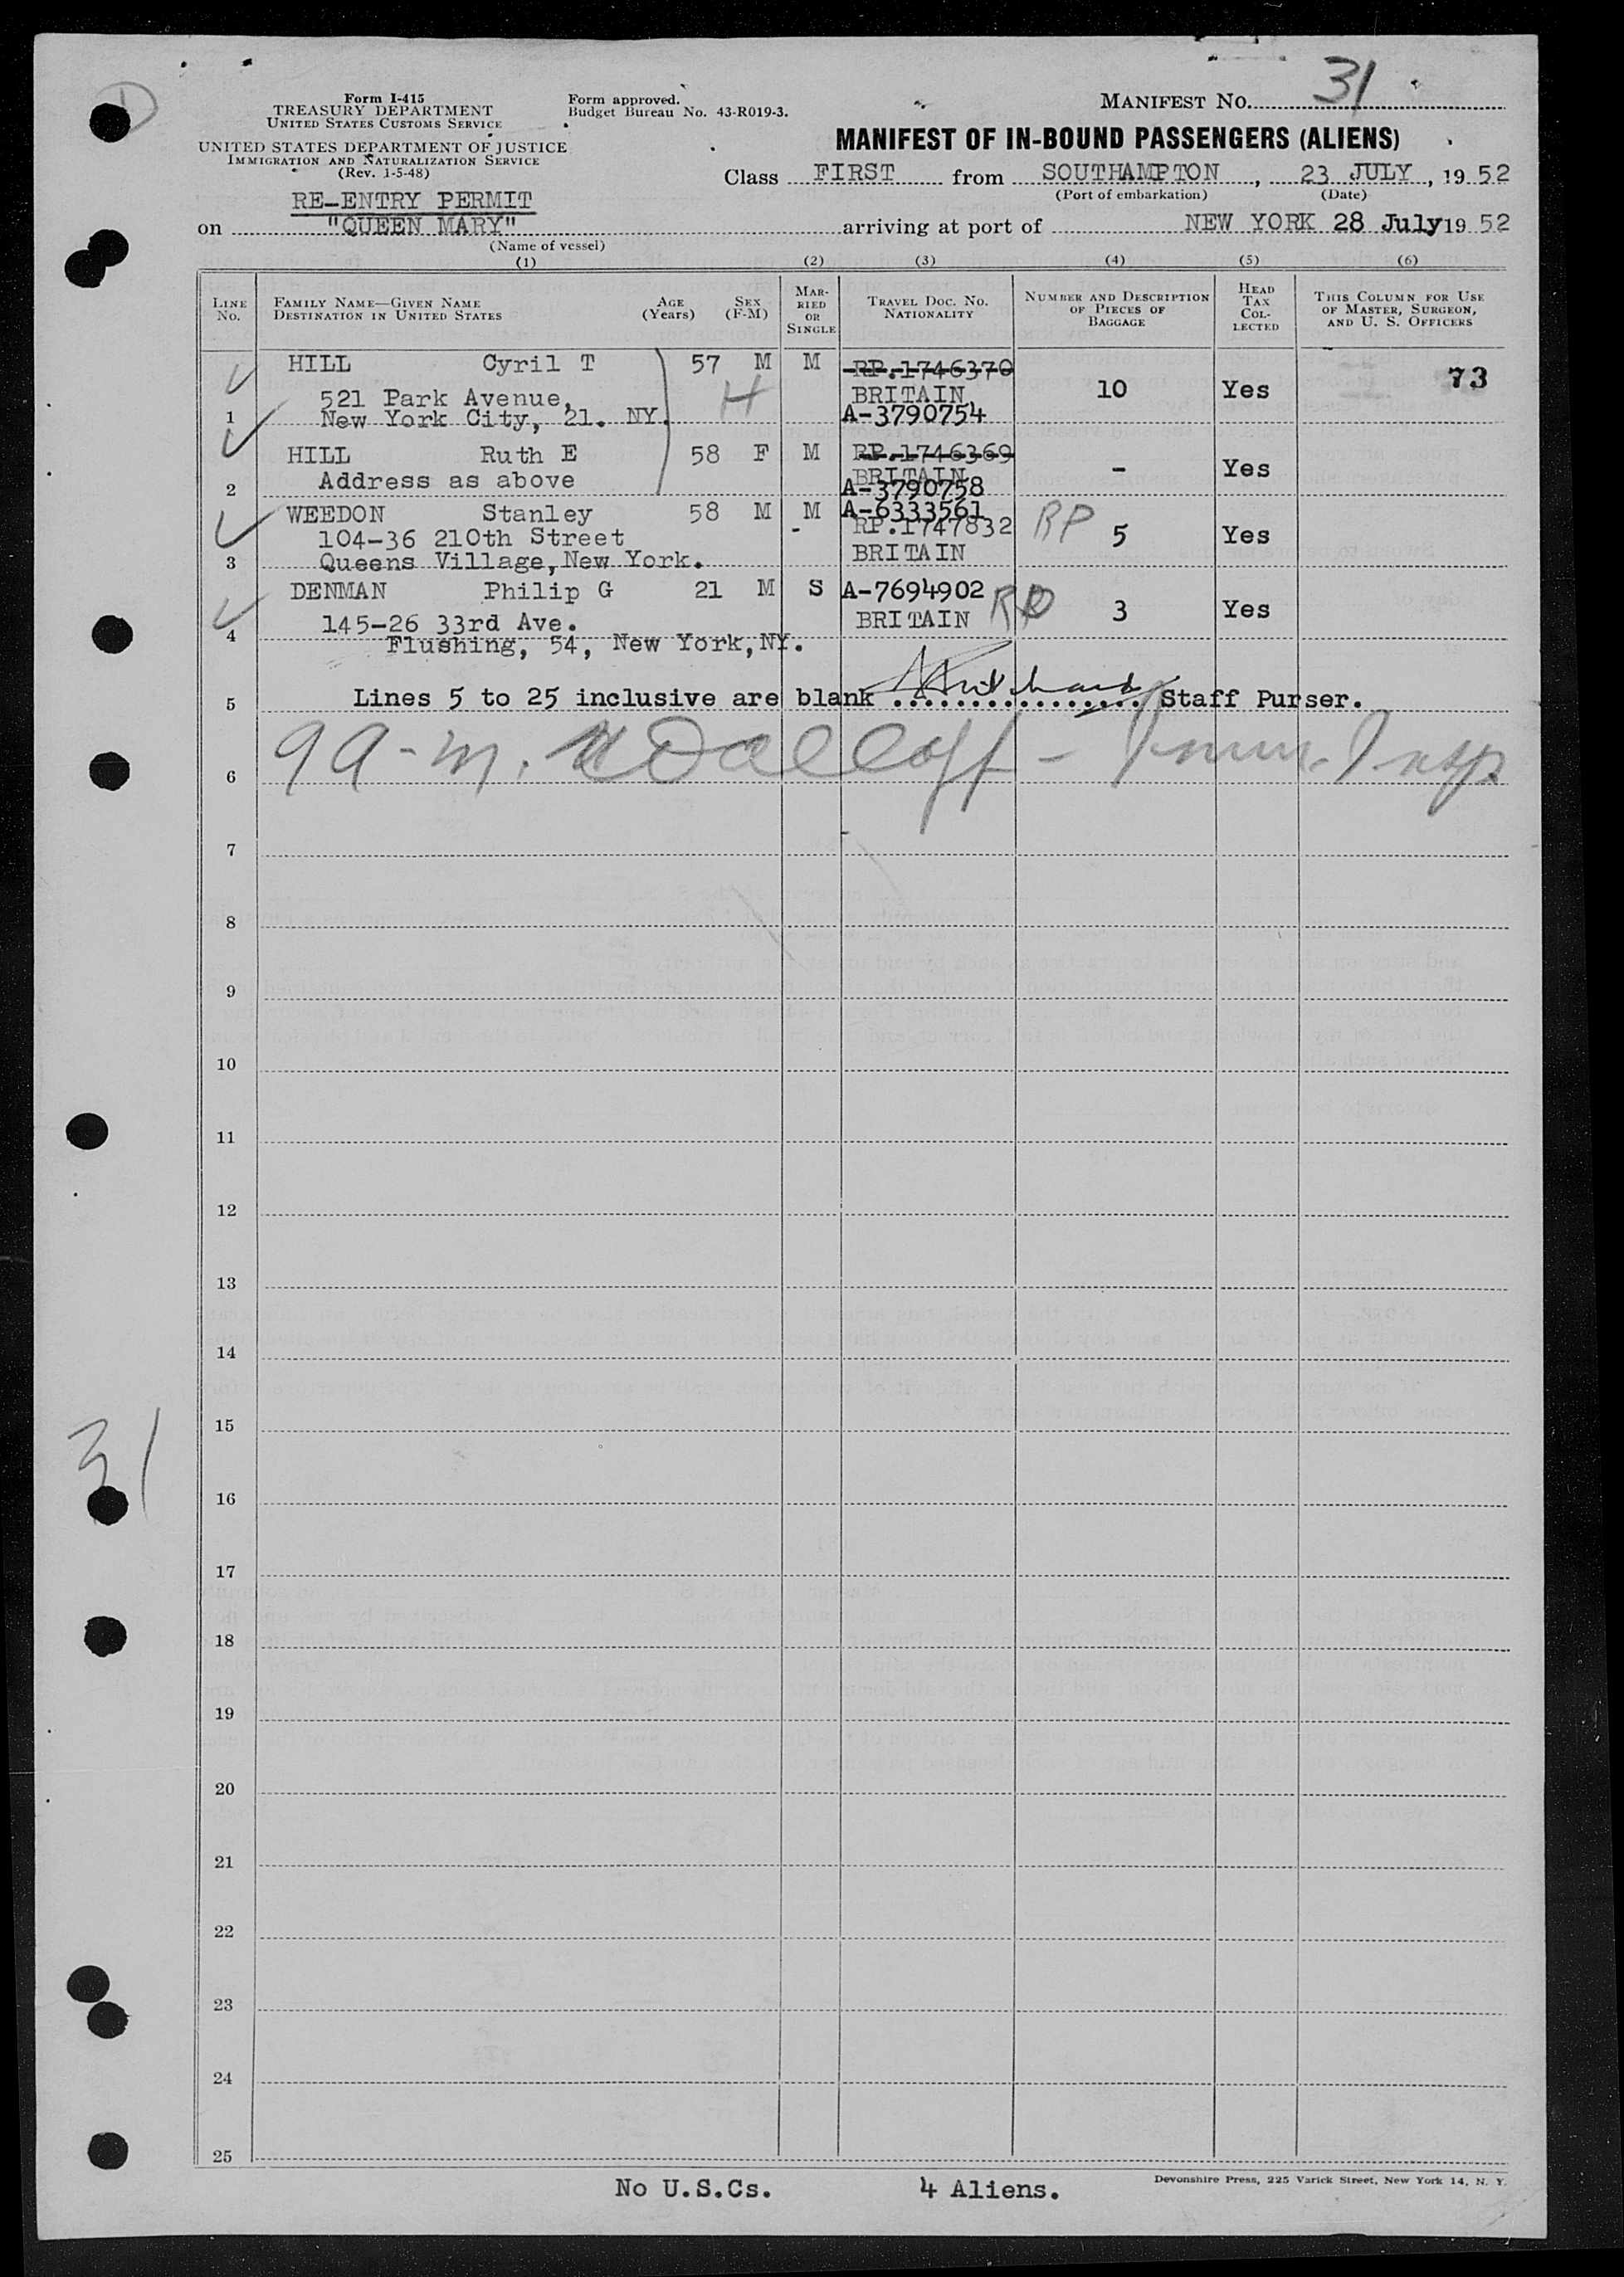 Form I-415
TREASURY DEPARTMENT
UNITED STATES CUSTOMS SERVICE
UNITED STATES DEPARTMENT OF JUSTICE
IMMIGRATION AND NATURALIZATION SERVICE
(Rev. 1-5-48)
Form approved.
Budget Bureau No. 43-R019-3.
MANIFEST NO. 31
MANIFEST OF IN-BOUND PASSENGERS (ALIENS)
Class FIRST from SOUTHAMPTON, 23 JULY, 1952
(Port of embarkation) (Date)
RE-ENTRY PERMIT
on "QUEEN MARY" arriving at port of NEW YORK 28 July 1952
(Name of vessel)
(1) (2) (3) (4) (5) (6)
LINE No.
FAMILY NAME—GIVEN NAME
DESTINATION IN UNITED STATES
AGE (Years)
SEX (F-M)
MARRIED OR SINGLE
TRAVEL DOC. NO.
NATIONALITY
NUMBER AND DESCRIPTION OF PIECES OF BAGGAGE
HEAD TAX COLLECTED
THIS COLUMN FOR USE OF MASTER, SURGEON, AND U. S. OFFICERS
HILL Cyril T 57 M M RP.1746370 73
521 Park Avenue, H BRITAIN 10 Yes
1 New York City, 21. NY. A-3790754
HILL Ruth E 58 F M RP.1746369
Address as above BRITAIN - Yes
2 A-3790758
WEEDON Stanley 58 M M A-6333561
104-36 210th Street - RP.1747832 RP 5 Yes
3 Queens Village, New York. BRITAIN
DENMAN Philip G 21 M S A-7694902
145-26 33rd Ave. BRITAIN RP 3 Yes
4
Flushing, 54, New York, NY.
5 Lines 5 to 25 inclusive are blank ................ Staff Purser.
6 9 a-m. Imm. Insp
7
8
9
10
11
12
13
14
15
31
16
17
18
19
20
21
22
23
24
25
No U.S.Cs. 4 Aliens.
Devonshire Press, 225 Varick Street, New York 14, N. Y.